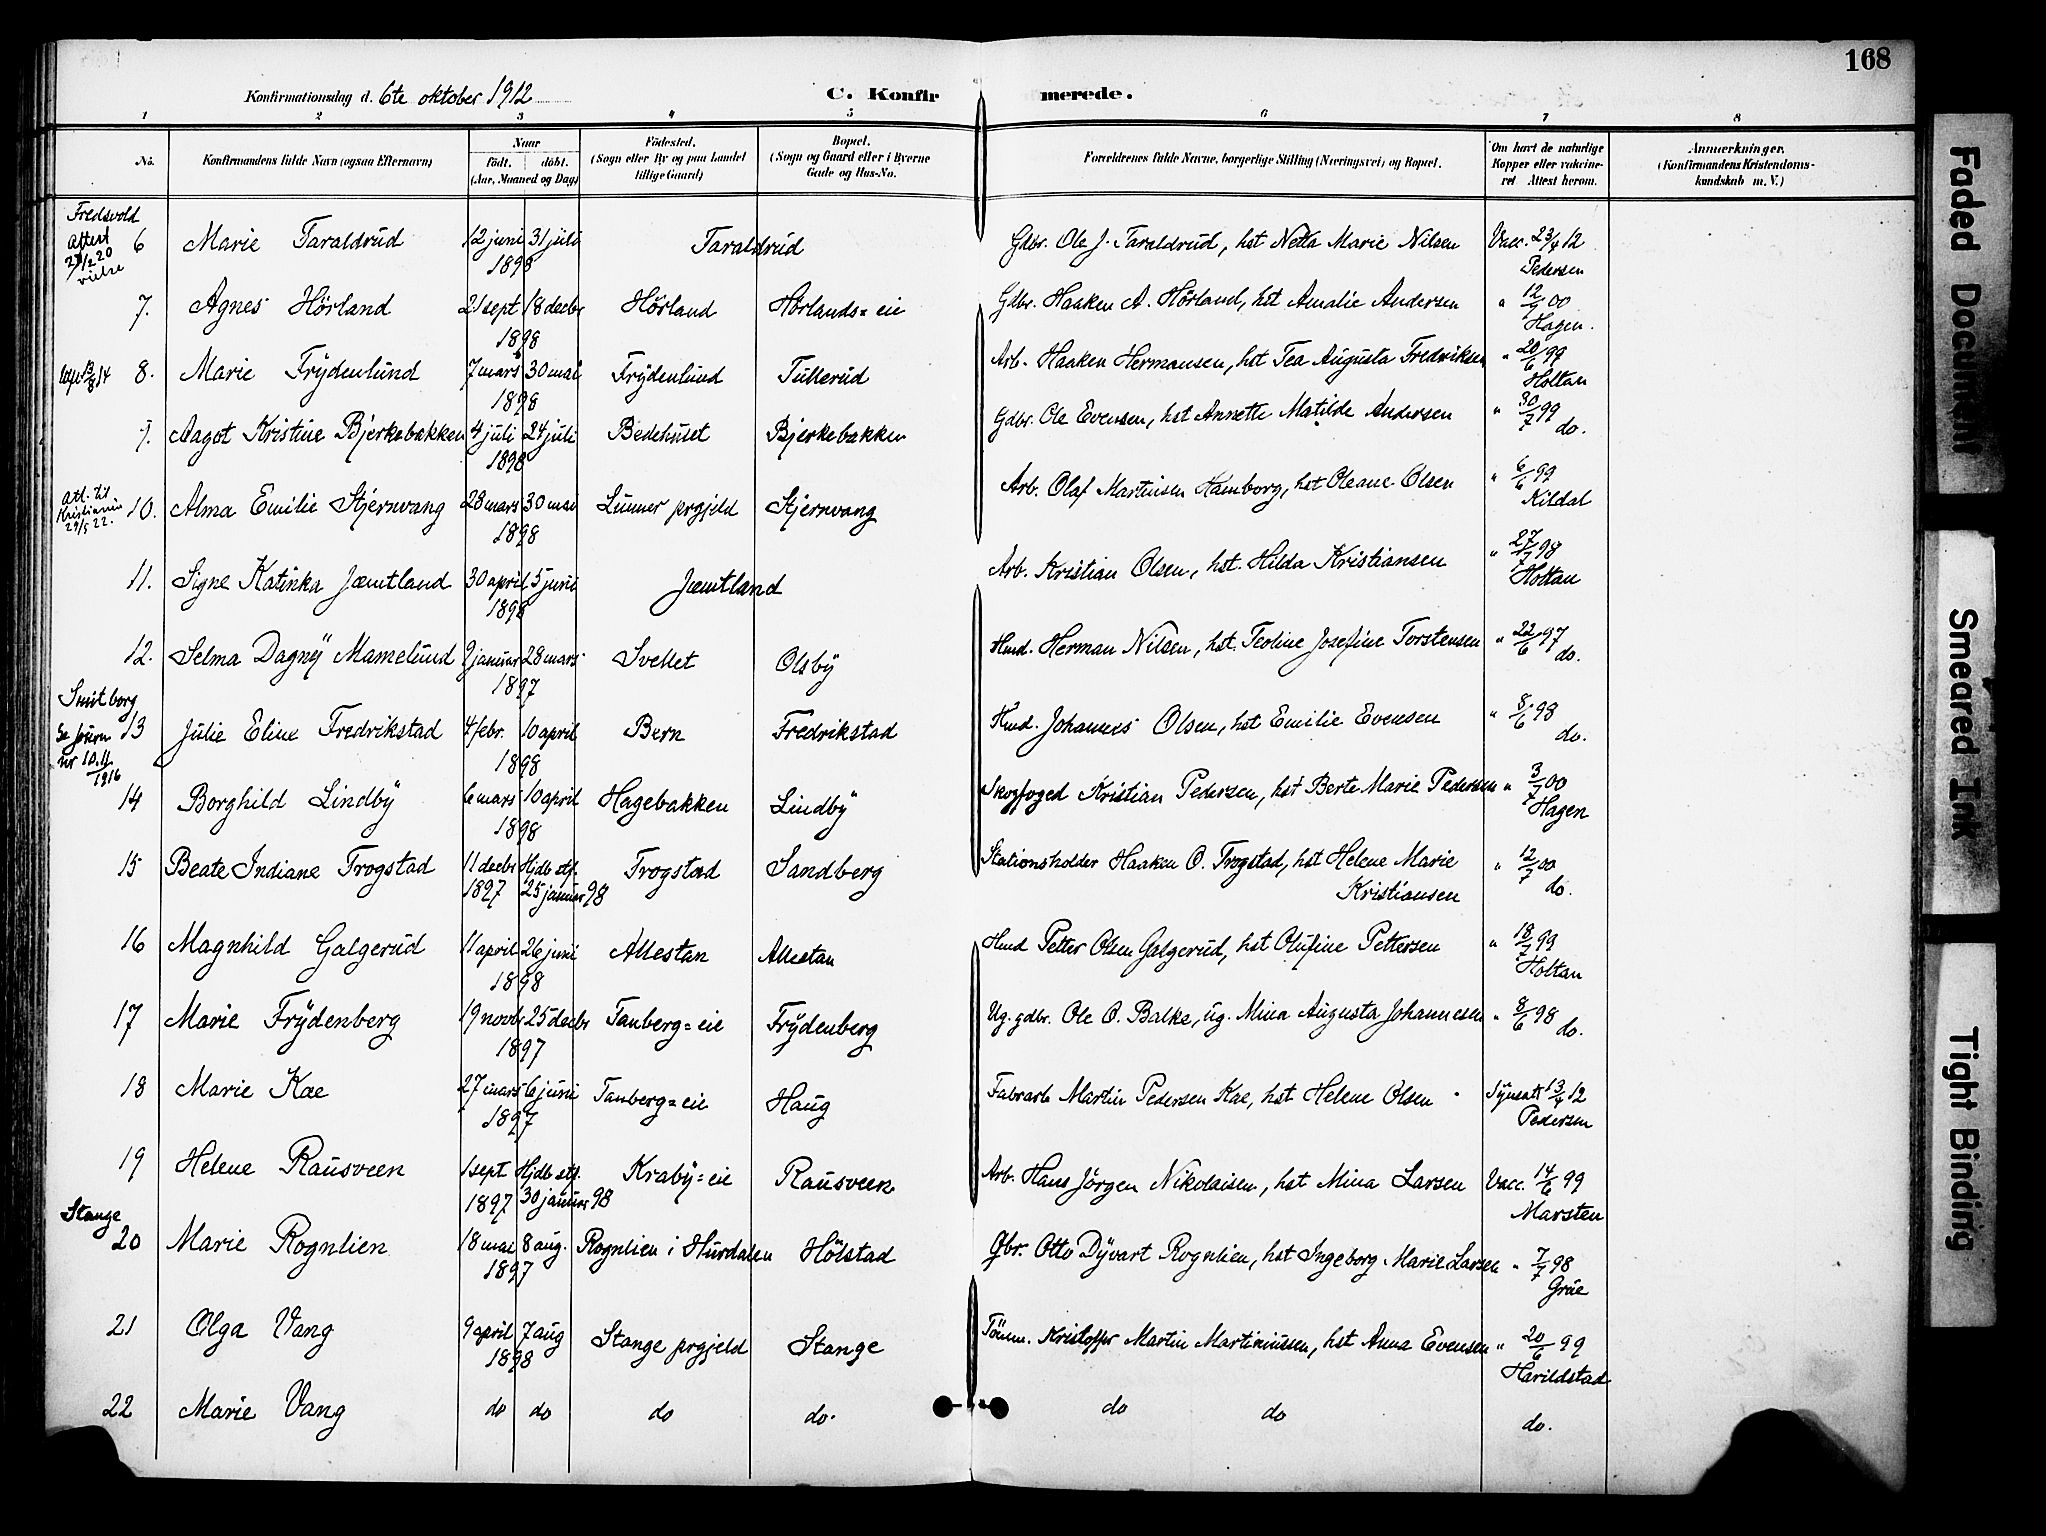 168
Konfirmationsdag d. 6te oktober 1912
C. Konfirmerede.
1 2 3 4 5 6 7 8
No.
Konfirmandens fulde Navn (ogsaa Efternavn)
Naar
födt. döbt.
(Aar, Maaned og Dag)
Födested.
(Sogn eller By og paa Landet
tillige Gaard)
Bopæl.
(Sogn og Gaard eller i Byerne
Gade og Hus-No.
Forældrenes fulde Navne, borgerlige Stilling (Næringsvei) og Bopæl.
Om havt de naturlige
Kopper eller vakcine-
ret Attest herom.
Anmærkninger.
(Konfirmandens Kristendoms-
kundskab m. V.)
Fredsvold
Attest
vielse
6 Marie Taraldrud 12 juni 31 juli Taraldrud Gdbr. Ole J. Taraldrud, hst Netta Marie Nilsen Vacc. 23/4 12
1898 Pedersen
7. Agnes Hörland 21 sept 18 decbr Hörland Hörlands=eie Gdbr. Haaken A. Hörland, hst Amalie Andersen " 12/7 00
1898 Hagen.
8. Marie Frydenlund 7 mars 30 mai Frydenlund Tullerud Arb. Haaken Hermansen, hst Tea Augusta Fredriksen " 20/6 99
1898 Holtan
9. Aagot Kristine Bjerkebakken 4 juli 24 juli Bedehuset Bjerkebakken Gdbr. Ole Evensen, hst Annette Matilde Andersen " 30/7 99
1898 do.
Att. til
Kristiania
29/5 22.
10. Alma Emilie Stjernvang 28 mars 30 mai Lunner prgjeld Stjernvang Arb. Olaf Martinsen Hamborg, hst Oleane Olsen " 6/6 99
1898 Kildal
11. Signe Katinka Jæmtland 30 april 5 juni Jæmtland Arb. Kristian Olsen, hst. Hilda Kristiansen " 27/7 98
1898 Holtan
12. Selma Dagny Mamelund 9 januar 28 mars Svellet Olsby Hmd. Herman Nilsen, hst. Teoline Josefine Torstensen " 22/6 97
1897 do.
Smitborg
Se journ
nr 10.11
1916
13 Julie Eline Fredrikstad 4 febr. 10 april Bern Fredrikstad Hmd. Johannes Olsen, hst Emilie Evensen " 8/6 98
1898 do.
14 Borghild Lindby 6 mars 10 april Hagebakken Lindby Skogfoged Kristian Pedersen, hst Berte Marie Pedersen " 3/7 00
1898 Hagen
15 Beate Indiane Trogstad 11 decbr Hjdb stf. Trogstad Sandberg Stationsholder Haaken O. Trogstad, hst Helene Marie " 12/7 00
1897 25 januar 98 Kristiansen do.
16 Magnhild Galgerud 11 april 26 juni Allestan Allestan Hmd Petter Olsen Galgerud, hst Olufine Pettersen " 18/7 99
1898 Holtan
17 Marie Frydenberg 19 novbr 25 decbr Tanberg=eie Frydenberg Ug. gdbr. Ole O. Balke, ug. Mina Augusta Johannesen " 8/6 98
1897 do.
18 Marie Kae 27 mars 6 juni Tanberg=eie Haug Fabrarb Martin Pedersen Kae, hst Helene Olsen Synsatt 13/4 12
1897 Pedersen
19 Helene Rausveen 1 sept Hjdb stf. Kraby=eie Rausveen Arb. Hans Jörgen Nikolaisen, hst Mina Larsen Vacc. 14/6 99
1897 30 januar 98 Marsten
Stange
20 Marie Rognlien 18 mai 8 aug. Rognlien i Hurdalen Hölstad Gbr. Otto Dyvart Rognlien, hst Ingeborg Marie Larsen " 7/7 98
1897 Grue
21 Olga Vang 9 april 7 aug Stange prgjeld Stange Tömm. Kristoffer Martin Martiniussen, hst Anna Evensen " 20/6 99
1898 Harildstad
22 Marie Vang do do do do. do do do.
Faded Document
Smeared Ink
Tight Binding